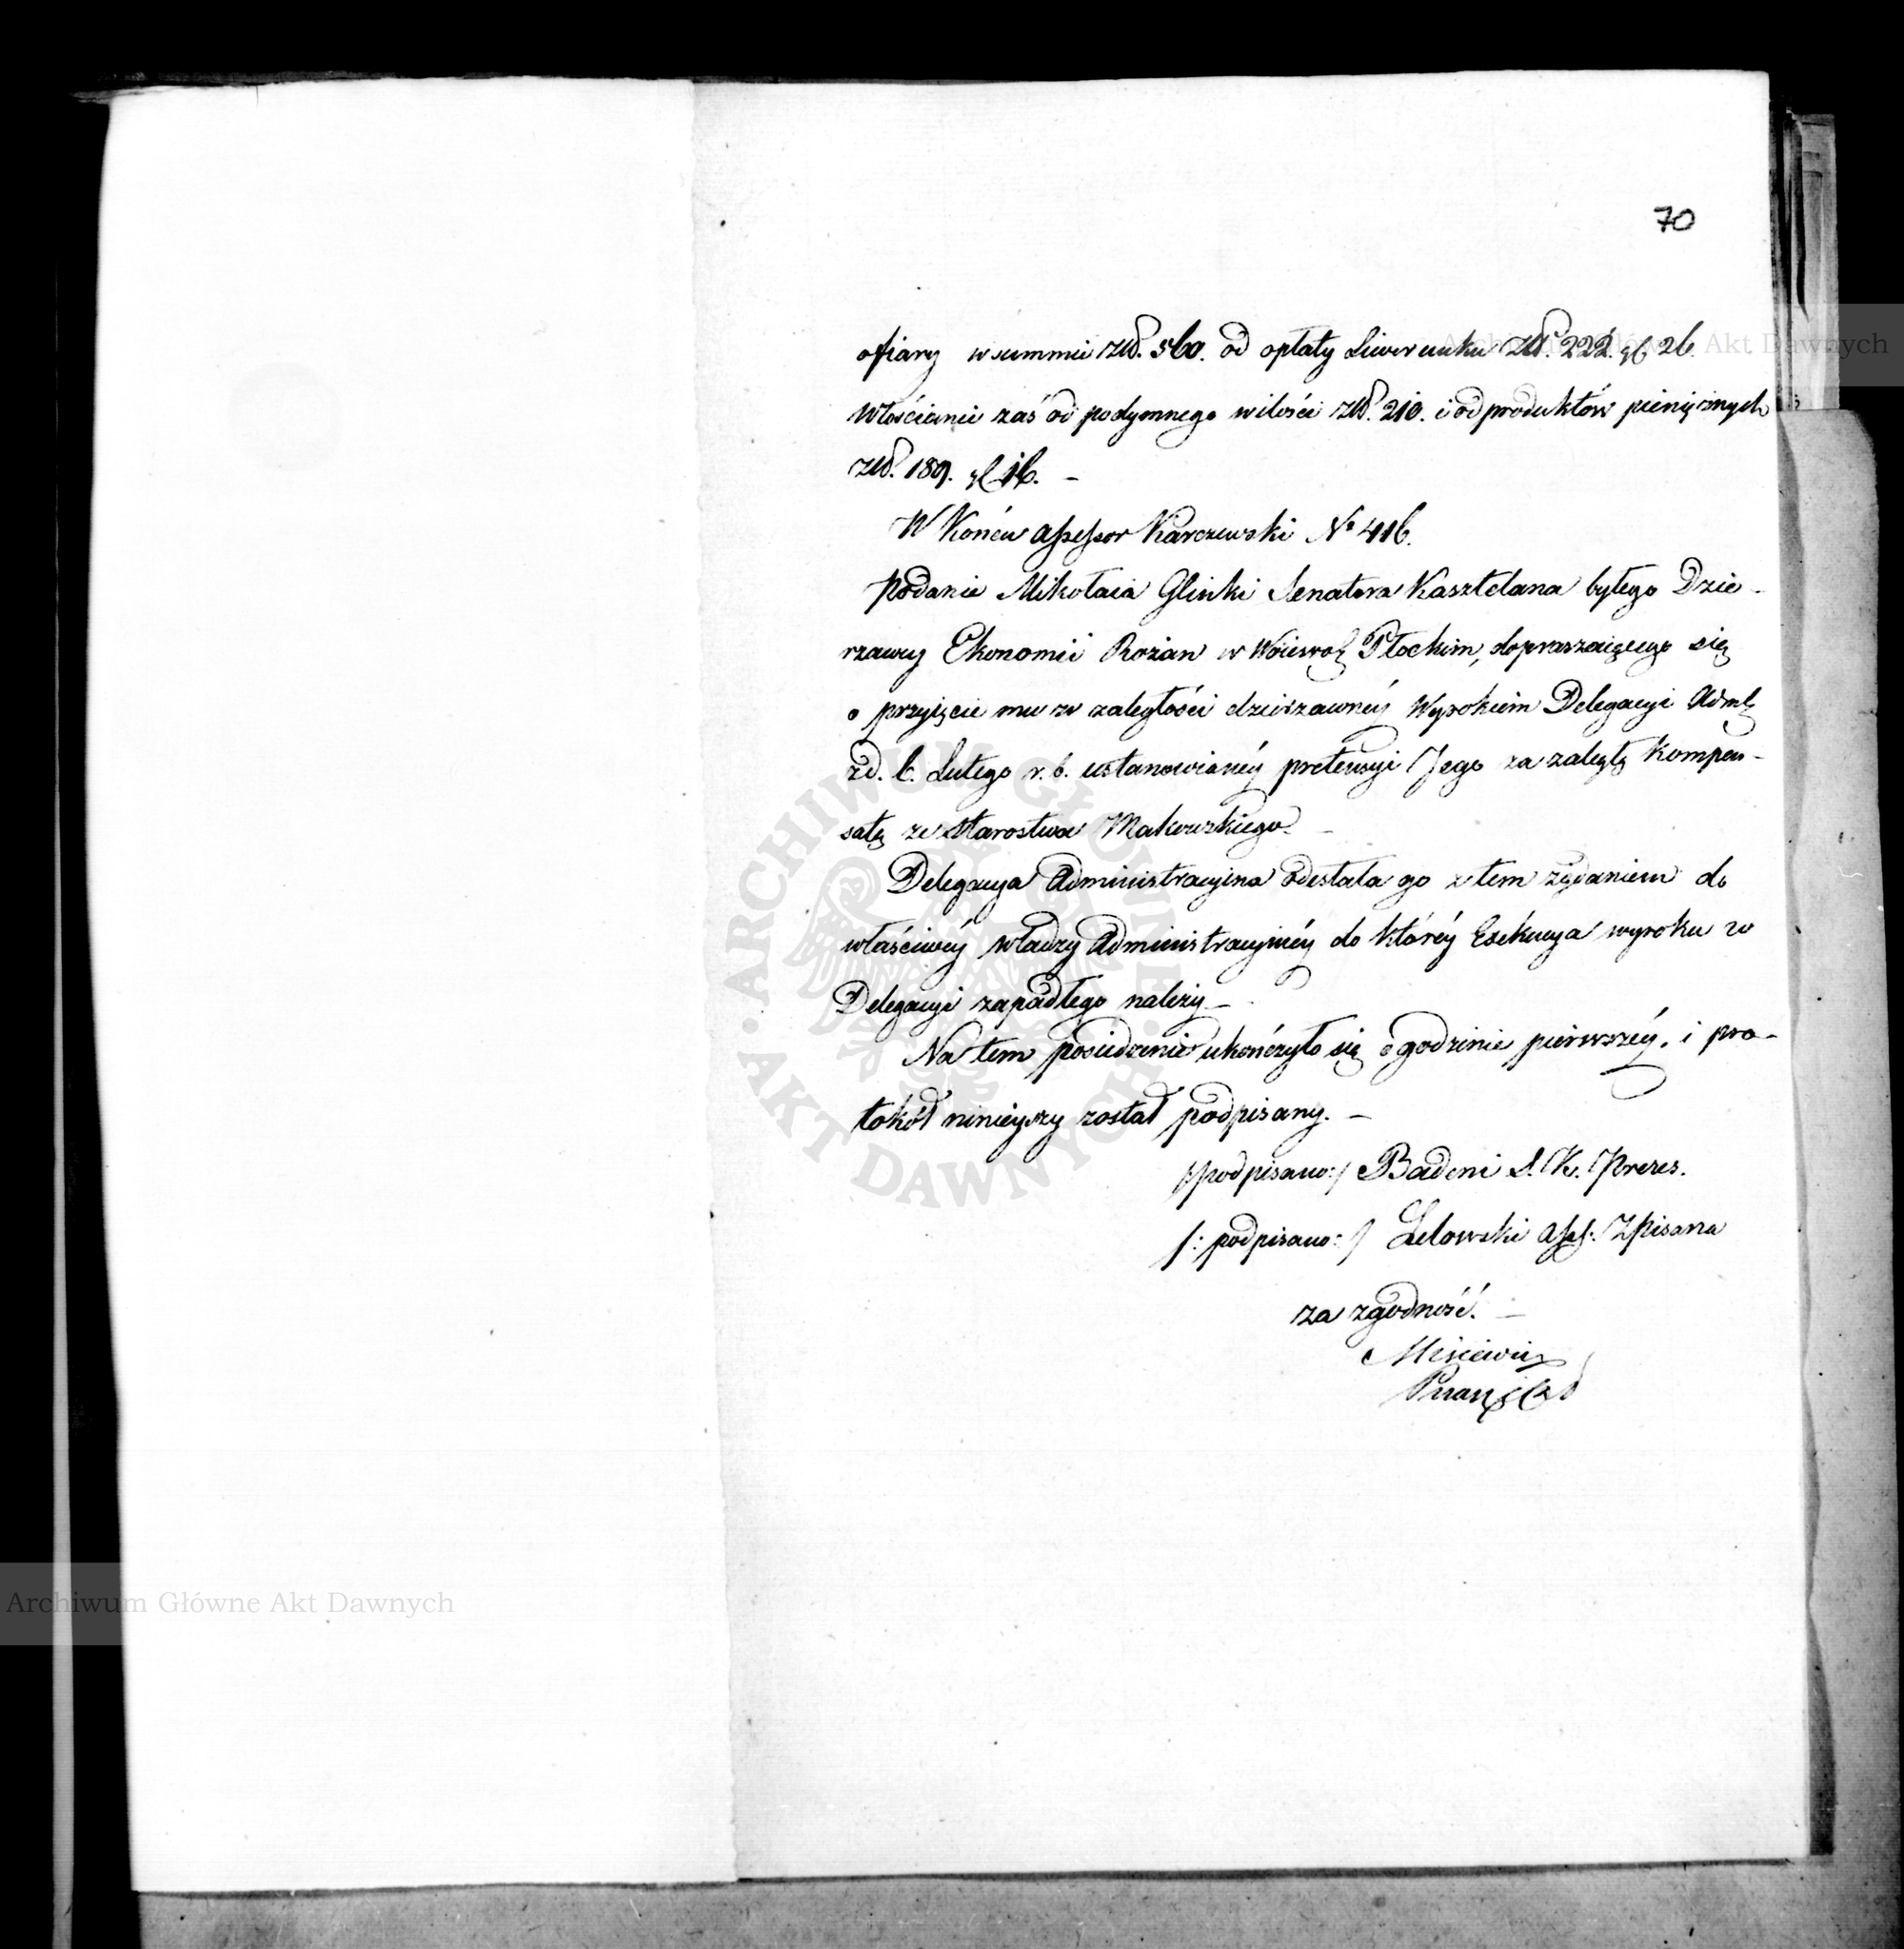 70
ofiary w summie Złp. 560. od opłaty Liwerunku Złp. 222. gr 26.
Włościanie zaś od podymnego w ilości Złp. 210. i od produktów pieniężnych
Złp. 189. gr 16. –
W Końcu assessor Karczewski No 416.
Podanie Mikołaia Glinki Senatora Kasztelana byłego Dzie-
rzawcy Ekonomii Rożan w Woiewodz Płockim, dopraszaiącego się
o przyięcie mu w zaległości dzierzawnéy Wyrokiem Delegacyi Adm
z d. 6. Lutego r. b. ustanowionéy pretensyi Jego za zaległą Kompen-
satę ze Starostwa Makowskiego. –
Delegacya Administracyina odesłała go z tem żądaniem do
właściwéy władzy Administracyinéy do któréy Exekucya wyroku w
Delegacyi zapadłego należy –
Na tem posiedzenie ukończyło się o godzinie pierwszéy, i pro-
tokół ninieyszy został podpisany. –
/:podpisano:/ Badeni S. K. Prezes.
/: podpisano: / Lelowski Ass:
za zgodność. –
ARCHIWUM GŁÓWNE AKT DAWNYCH
Archiwum Główne Akt Dawnych
Archiwum Główne Akt Dawnych